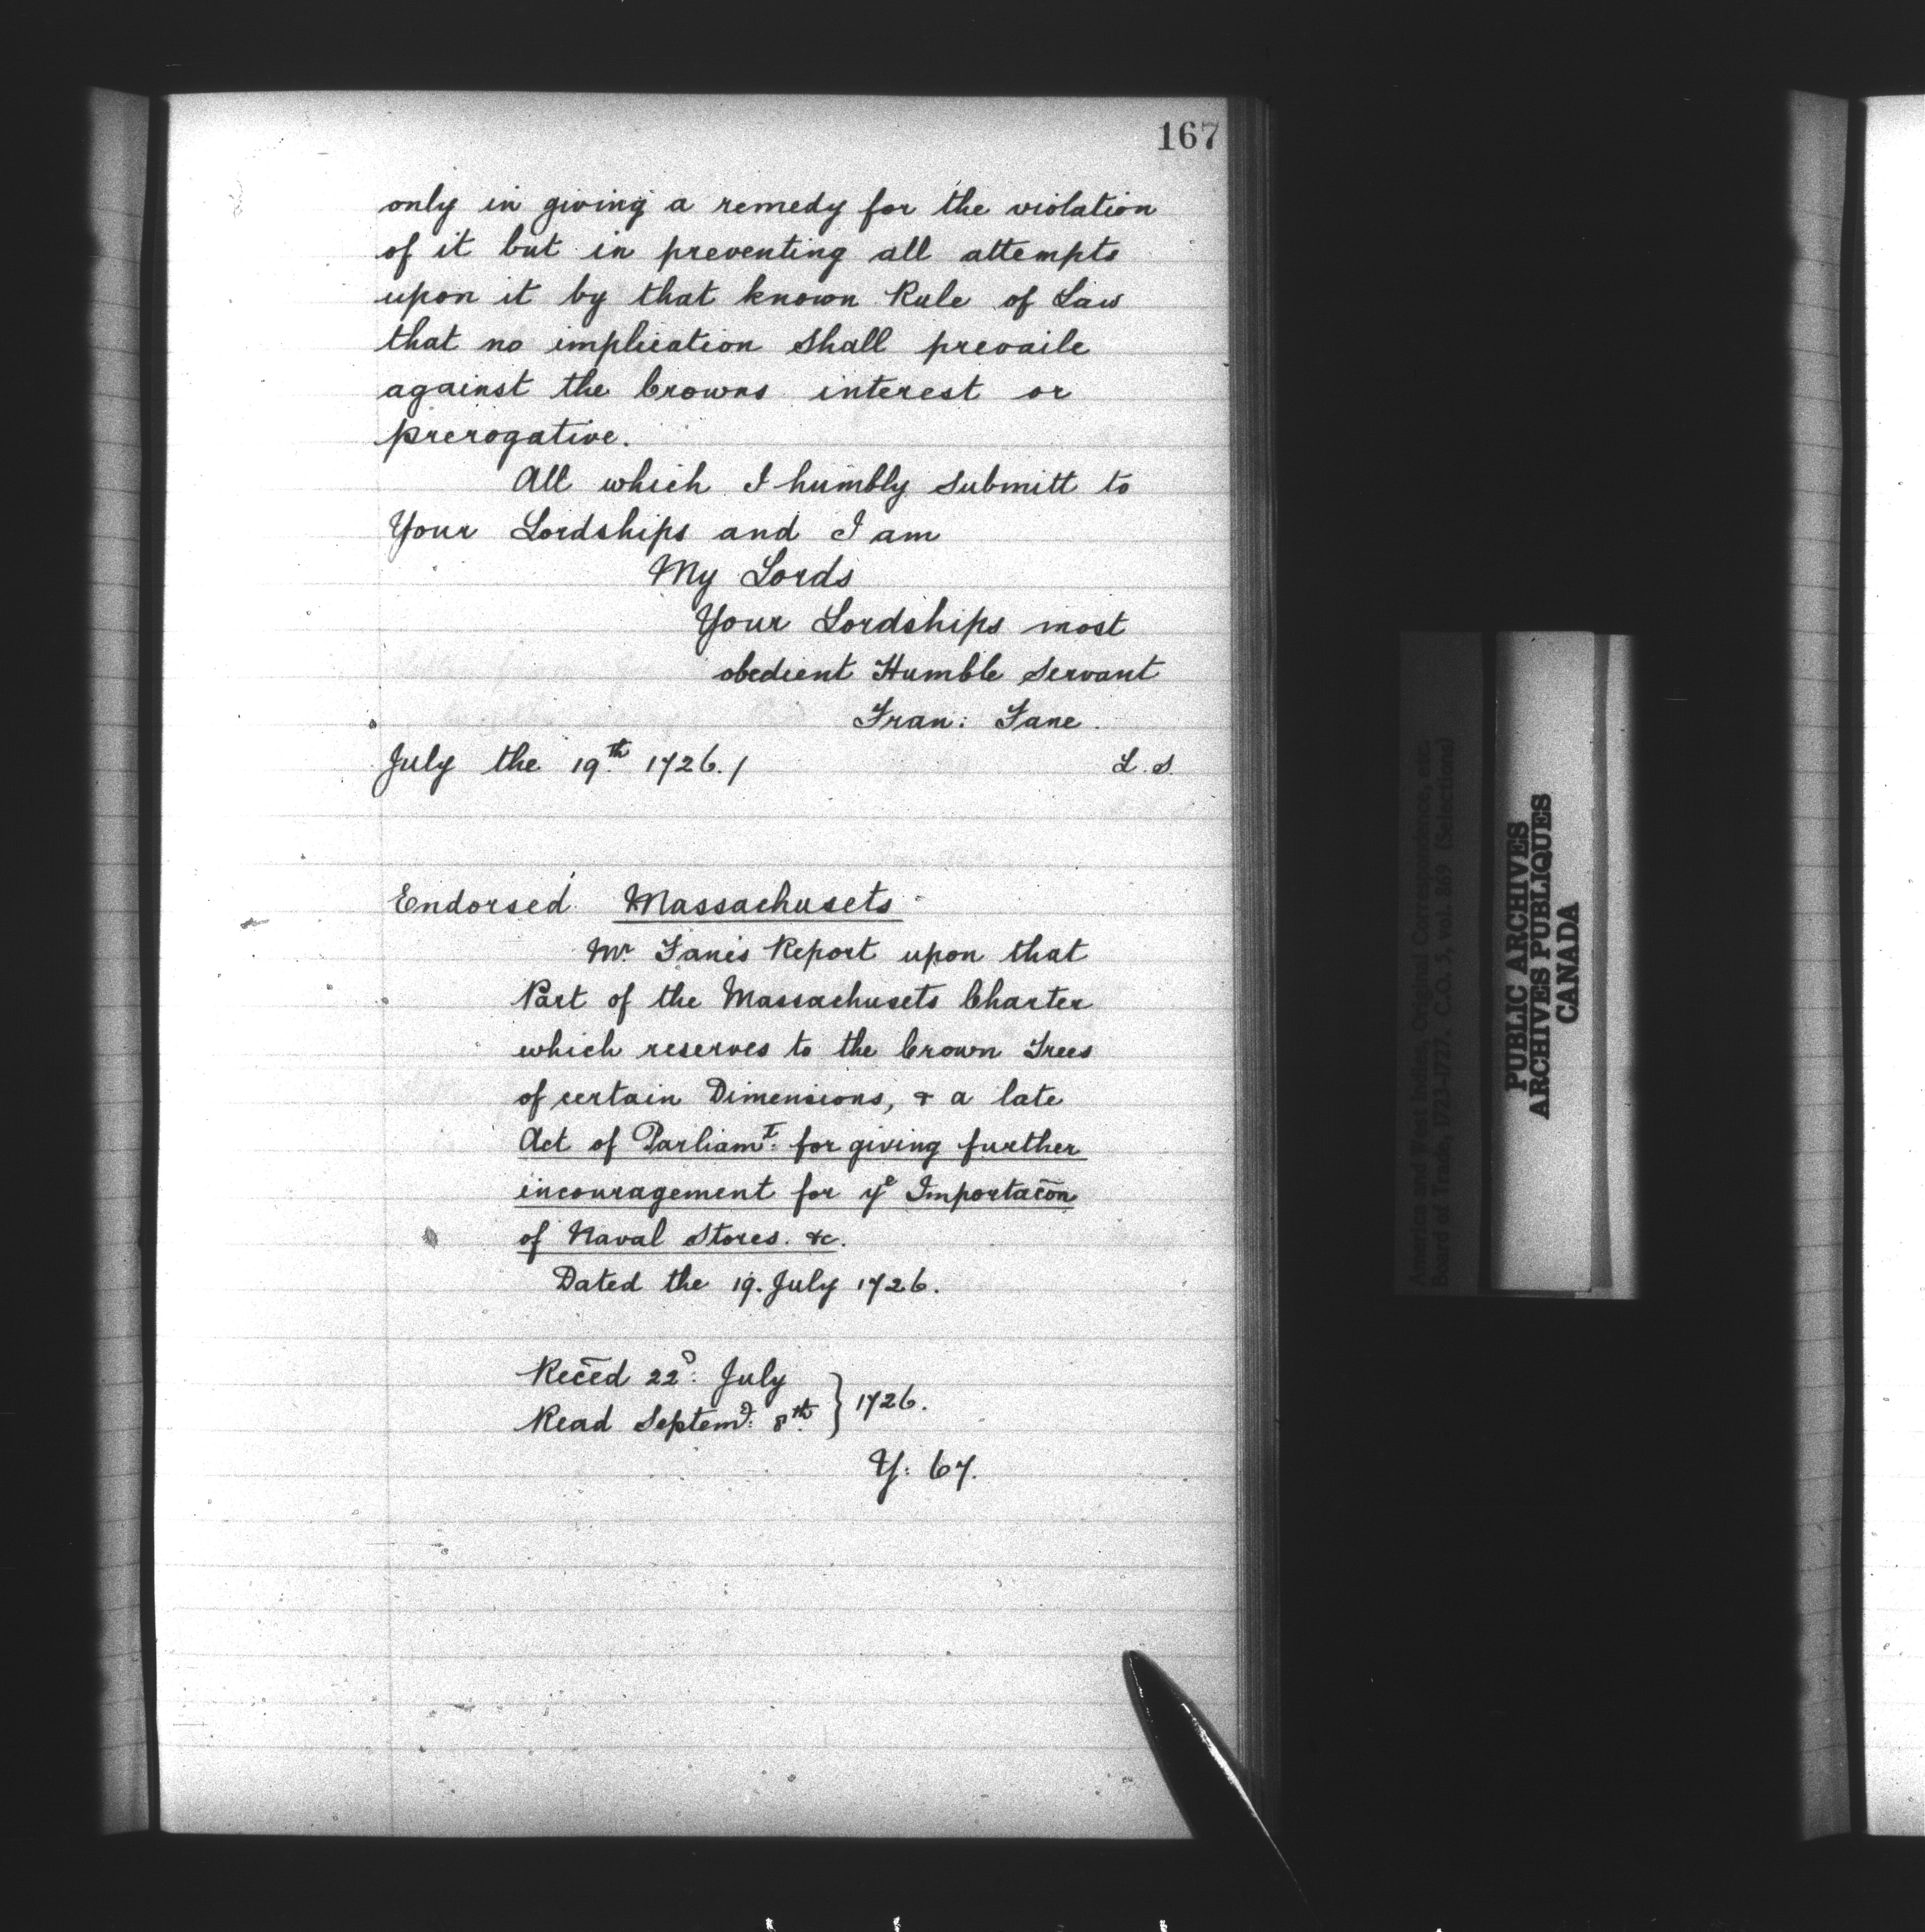 167
only in giving a remedy for the violation
of it but in preventing all attempts
upon it by that known Rule of Law
that no implication shall prevaile
against the Crowns interest or
prerogative.
All which I humbly submitt to
Your Lordships and I am
My Lords
Your Lordships most
obedient Humble Servant
Fran: Fane.
July the 19th 1726./ L.S.
Endorsed Massachusets
Mr. Fanes Report upon that
Part of the Massachusets Charter
which reserves to the Crown Trees
of certain Dimensions, & a late
Act of Parliamt: for giving further
incouragement for ye Importacõn
of Naval Stores. &c.
Dated the 19. July 1726.
Recēd 22d: July
Read Septemr: 8th } 1726.
Y: 67.
America and West Indies, Original Correspondence, etc.
Board of Trade, 1723-1727. C.O. 5, vol. 869 (Selections)
PUBLIC ARCHIVES
ARCHIVES PUBLIQUES
CANADA